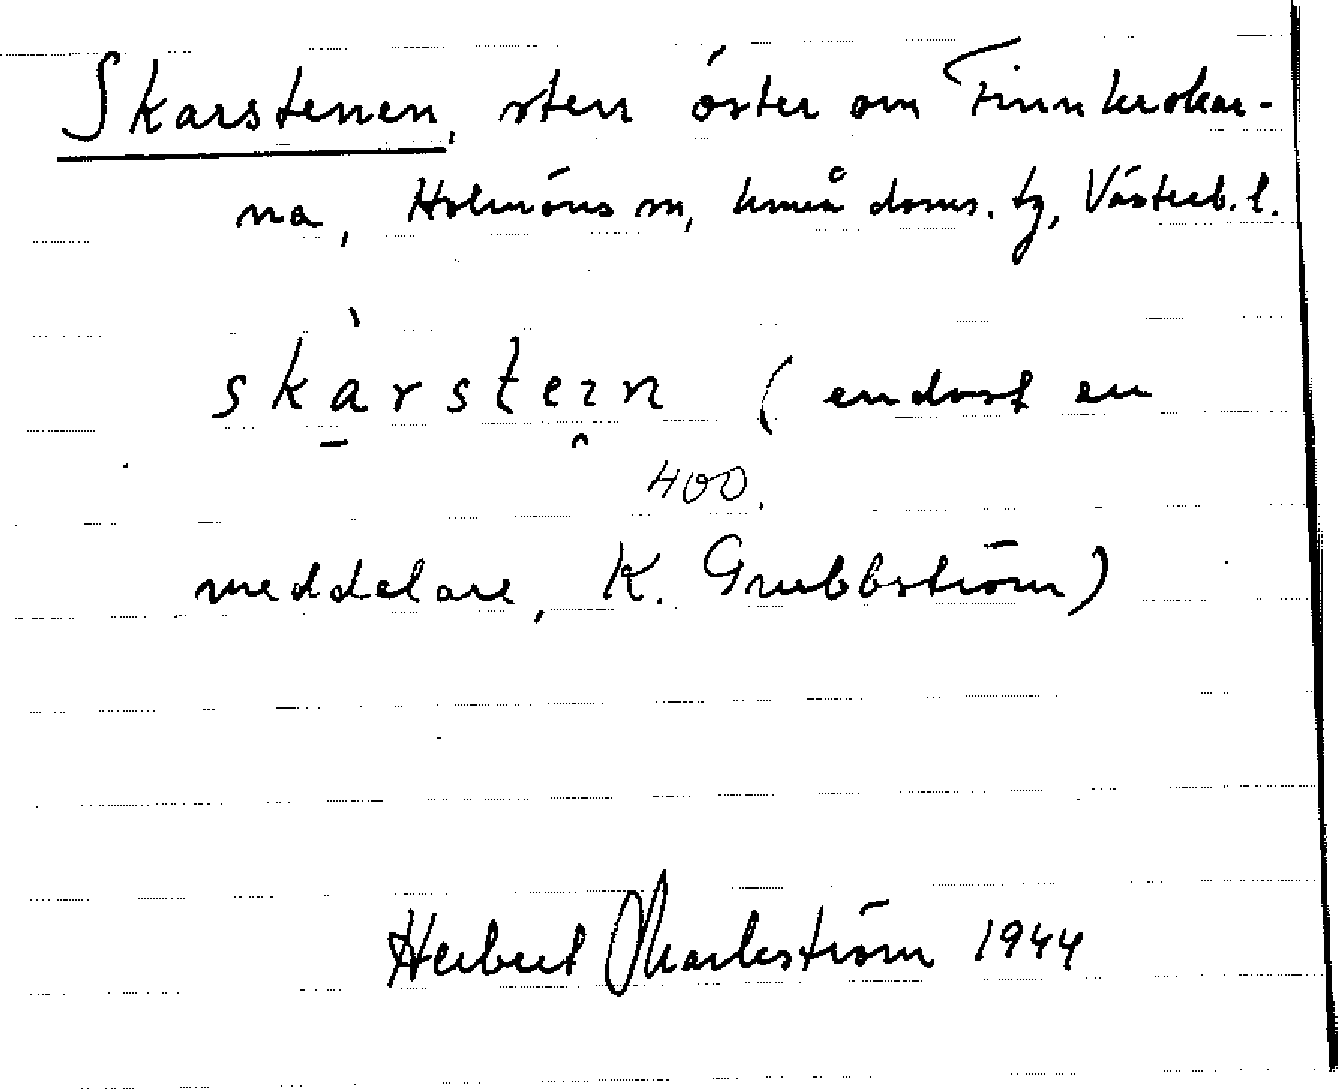 Skarstenen, sten öster om Finnkrokar-
na, Holmöns sn, Umeå doms. tg, Västerb. l.
skàrstein (endast en
400.
meddelare, K. Grubbström)
Herbert Markström 1944